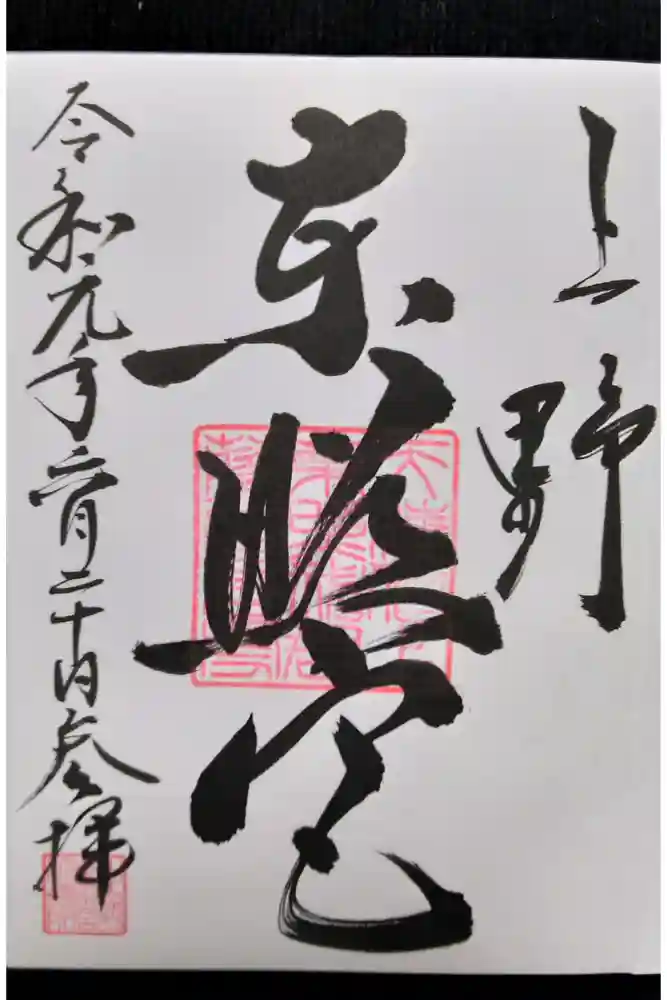 上野
東照宮
令和元年六月二十日参拝